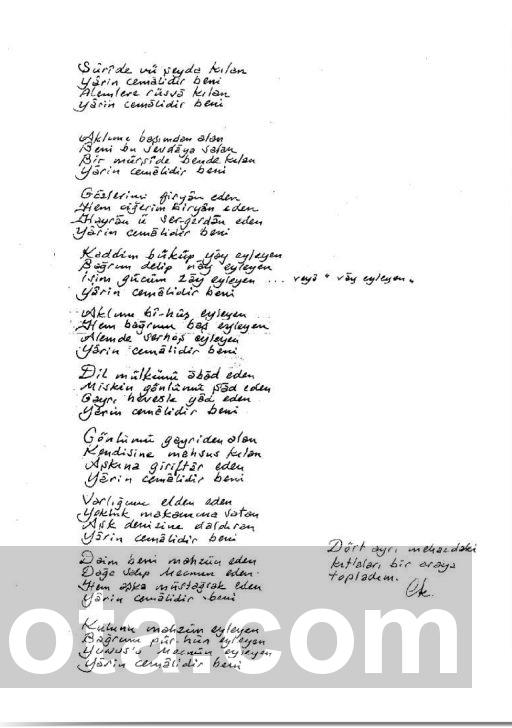 Şûrîde vü şeydâ kılan
Yârin cemâlidir beni
Âlemlere rüsvâ kılan
Yârin cemâlidir beni
Aklımı başımdan alan
Beni bu sevdâya salan
Bir mürşide bende kılan
Yârin cemâlidir beni
Gözlerimi giryân eden
Hem ciğerim biryân eden
Hayrân ü ser-gerdân eden
Yârin cemâlidir beni
Kaddim büküp yây eyleyen
Bağrım delip nây eyleyen
İşim gücüm zây eyleyen ... veyâ "vây eyleyen"
Yârin cemâlidir beni
Aklımı bî-hûş eyleyen
Hem bağrımı baş eyleyen
Âlemde serhoş eyleyen
Yârin cemâlidir beni
Dil mülkünü âbâd eden
Miskin gönlümü şâd eden
Gayrı hevesle yâd eden
Yârin cemâlidir beni
Gönlümü gayriden alan
Kendisine mahsus kılan
Aşkına giriftâr eden
Yârin cemâlidir beni
Varlığımı elden eden
Yokluk makamına satan
Aşk denizine daldıran
Yârin cemâlidir beni
Dâim beni mahzûn eden
Dağa salıp Mecnun eden
Hem aşka müstağrak eden
Yârin cemâlidir beni
Dört ayrı mehazdaki
kıt'aları bir araya
topladım.
Kulunu mahzûn eyleyen
Bağrımı pür-hûn eyleyen
Yûnus'u Mecnûn eyleyen
Yârin cemâlidir beni
ota.com